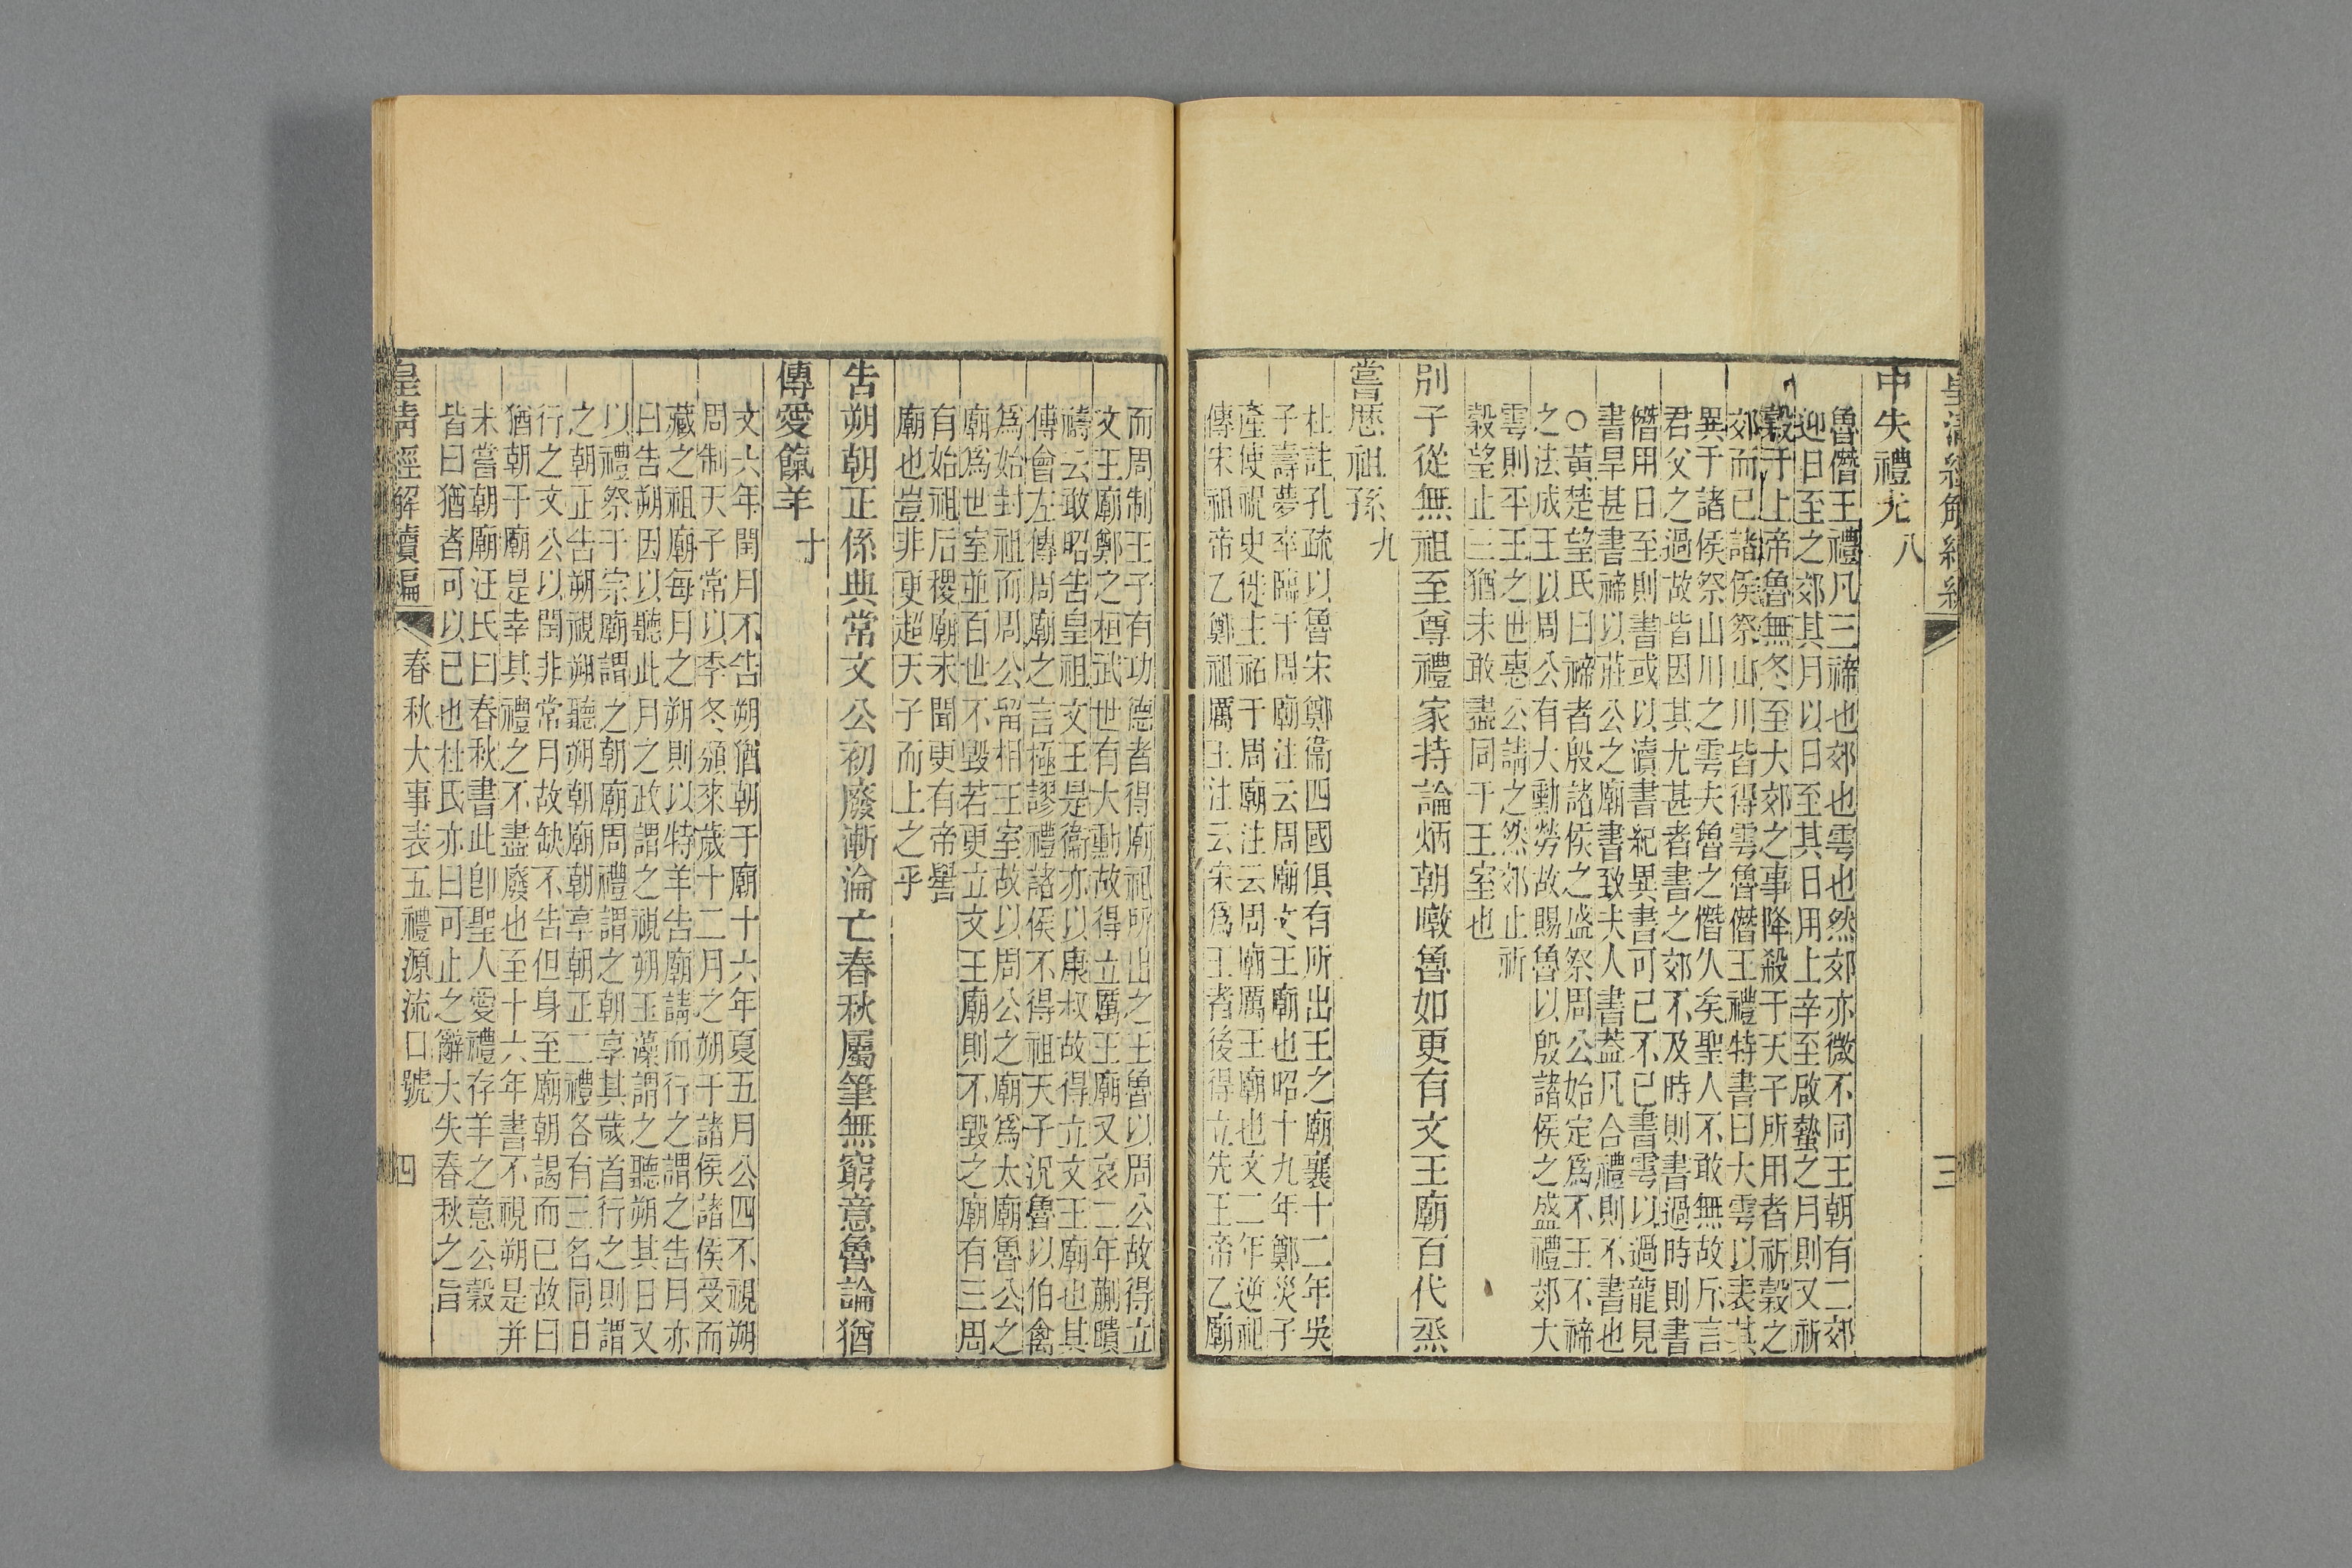 皇清經解續編
三
中失禮尤八
魯僭王禮凡三禘也郊也雩也然郊亦微不同王朝有二郊
迎日至之郊其月以日至其日用上辛至啟蟄之月則又祈
穀于上帝魯無冬至大郊之事降殺于天子所用者祈穀之
郊而已諸侯祭山川皆得雩魯僭王禮特書曰大雩以表其
異于諸侯祭山川之雩夫魯之僭久矣聖人不敢無故斥言
君父之過故皆因其尤甚者書之郊不及時則書過時則書
僭用日至則書或以瀆書紀異書可已不已書雩以過龍見
書旱甚書禘以莊公之廟書致夫人書葢凡合禮則不書也
○黃楚望氏曰禘者殷諸侯之盛祭周公始定爲不王不禘
之法成王以周公有大勳勞故賜魯以殷諸侯之盛禮郊大
雩則平王之世惠公請之然郊止祈
穀望止三猶未敢盡同于王室也
別子從無祖至尊禮家持論炳朝暾魯如更有文王廟百代烝
嘗慁祖孫九
杜註孔疏以魯宋鄭衞四國俱有所出王之廟襄十二年吳
子壽夢卒臨于周廟注云周廟文王廟也昭十九年鄭災子
產使祝史徙主祏于周廟注云周廟厲王廟也文二年逆祀
傳宋祖帝乙鄭祖厲王注云宋爲王者後得立先王帝乙廟
而周制王子有功德者得廟祀所出之王魯以周公故得立
文王廟鄭之桓武世有大勳故得立厲王廟又哀二年蒯聵
禱云敢昭告皇祖文王是衞亦以康叔故得立文王廟也其
傳會左傳周廟之言極謬禮諸侯不得祖天子況魯以伯禽
爲始封祖而周公留相王室故以周公之廟爲太廟魯公之
廟爲世室並百世不毀若更立文王廟則不毀之廟有三周
有始祖后稷廟未聞更有帝嚳
廟也豈非更超天子而上之乎
告朔朝正係典常文公初廢漸淪亡春秋屬筆無窮意魯論猶
傳愛餼羊十
文六年閏月不告朔猶朝于廟十六年夏五月公四不視朔
周制天子常以季冬頒來歲十二月之朔于諸侯諸侯受而
藏之祖廟每月之朔則以特羊告廟請而行之謂之告月亦
曰告朔因以聽此月之政謂之視朔玉藻謂之聽朔其日又
以禮祭于宗廟謂之朝廟周禮謂之朝享其歲首行之則謂
之朝正告朔視朔聽朔朝廟朝享朝正二禮各有三名同日
行之文公以閏非常月故缺不告但身至廟朝謁而已故曰
猶朝于廟是幸其禮之不盡廢也至十六年書不視朔是并
未嘗朝廟汪氏曰春秋書此卽聖人愛禮存羊之意公穀
皆曰猶者可以已也杜氏亦曰可止之辭大失春秋之旨
皇清經解續編
春秋大事表五禮源流口號
四